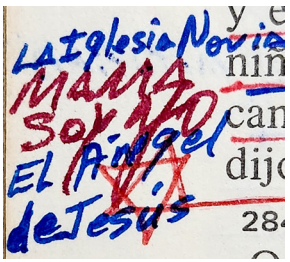 LA Iglesia Novia
MAMA
SOY YO
El Ángel
de Jesús
y e
niñ
can
dijo
284